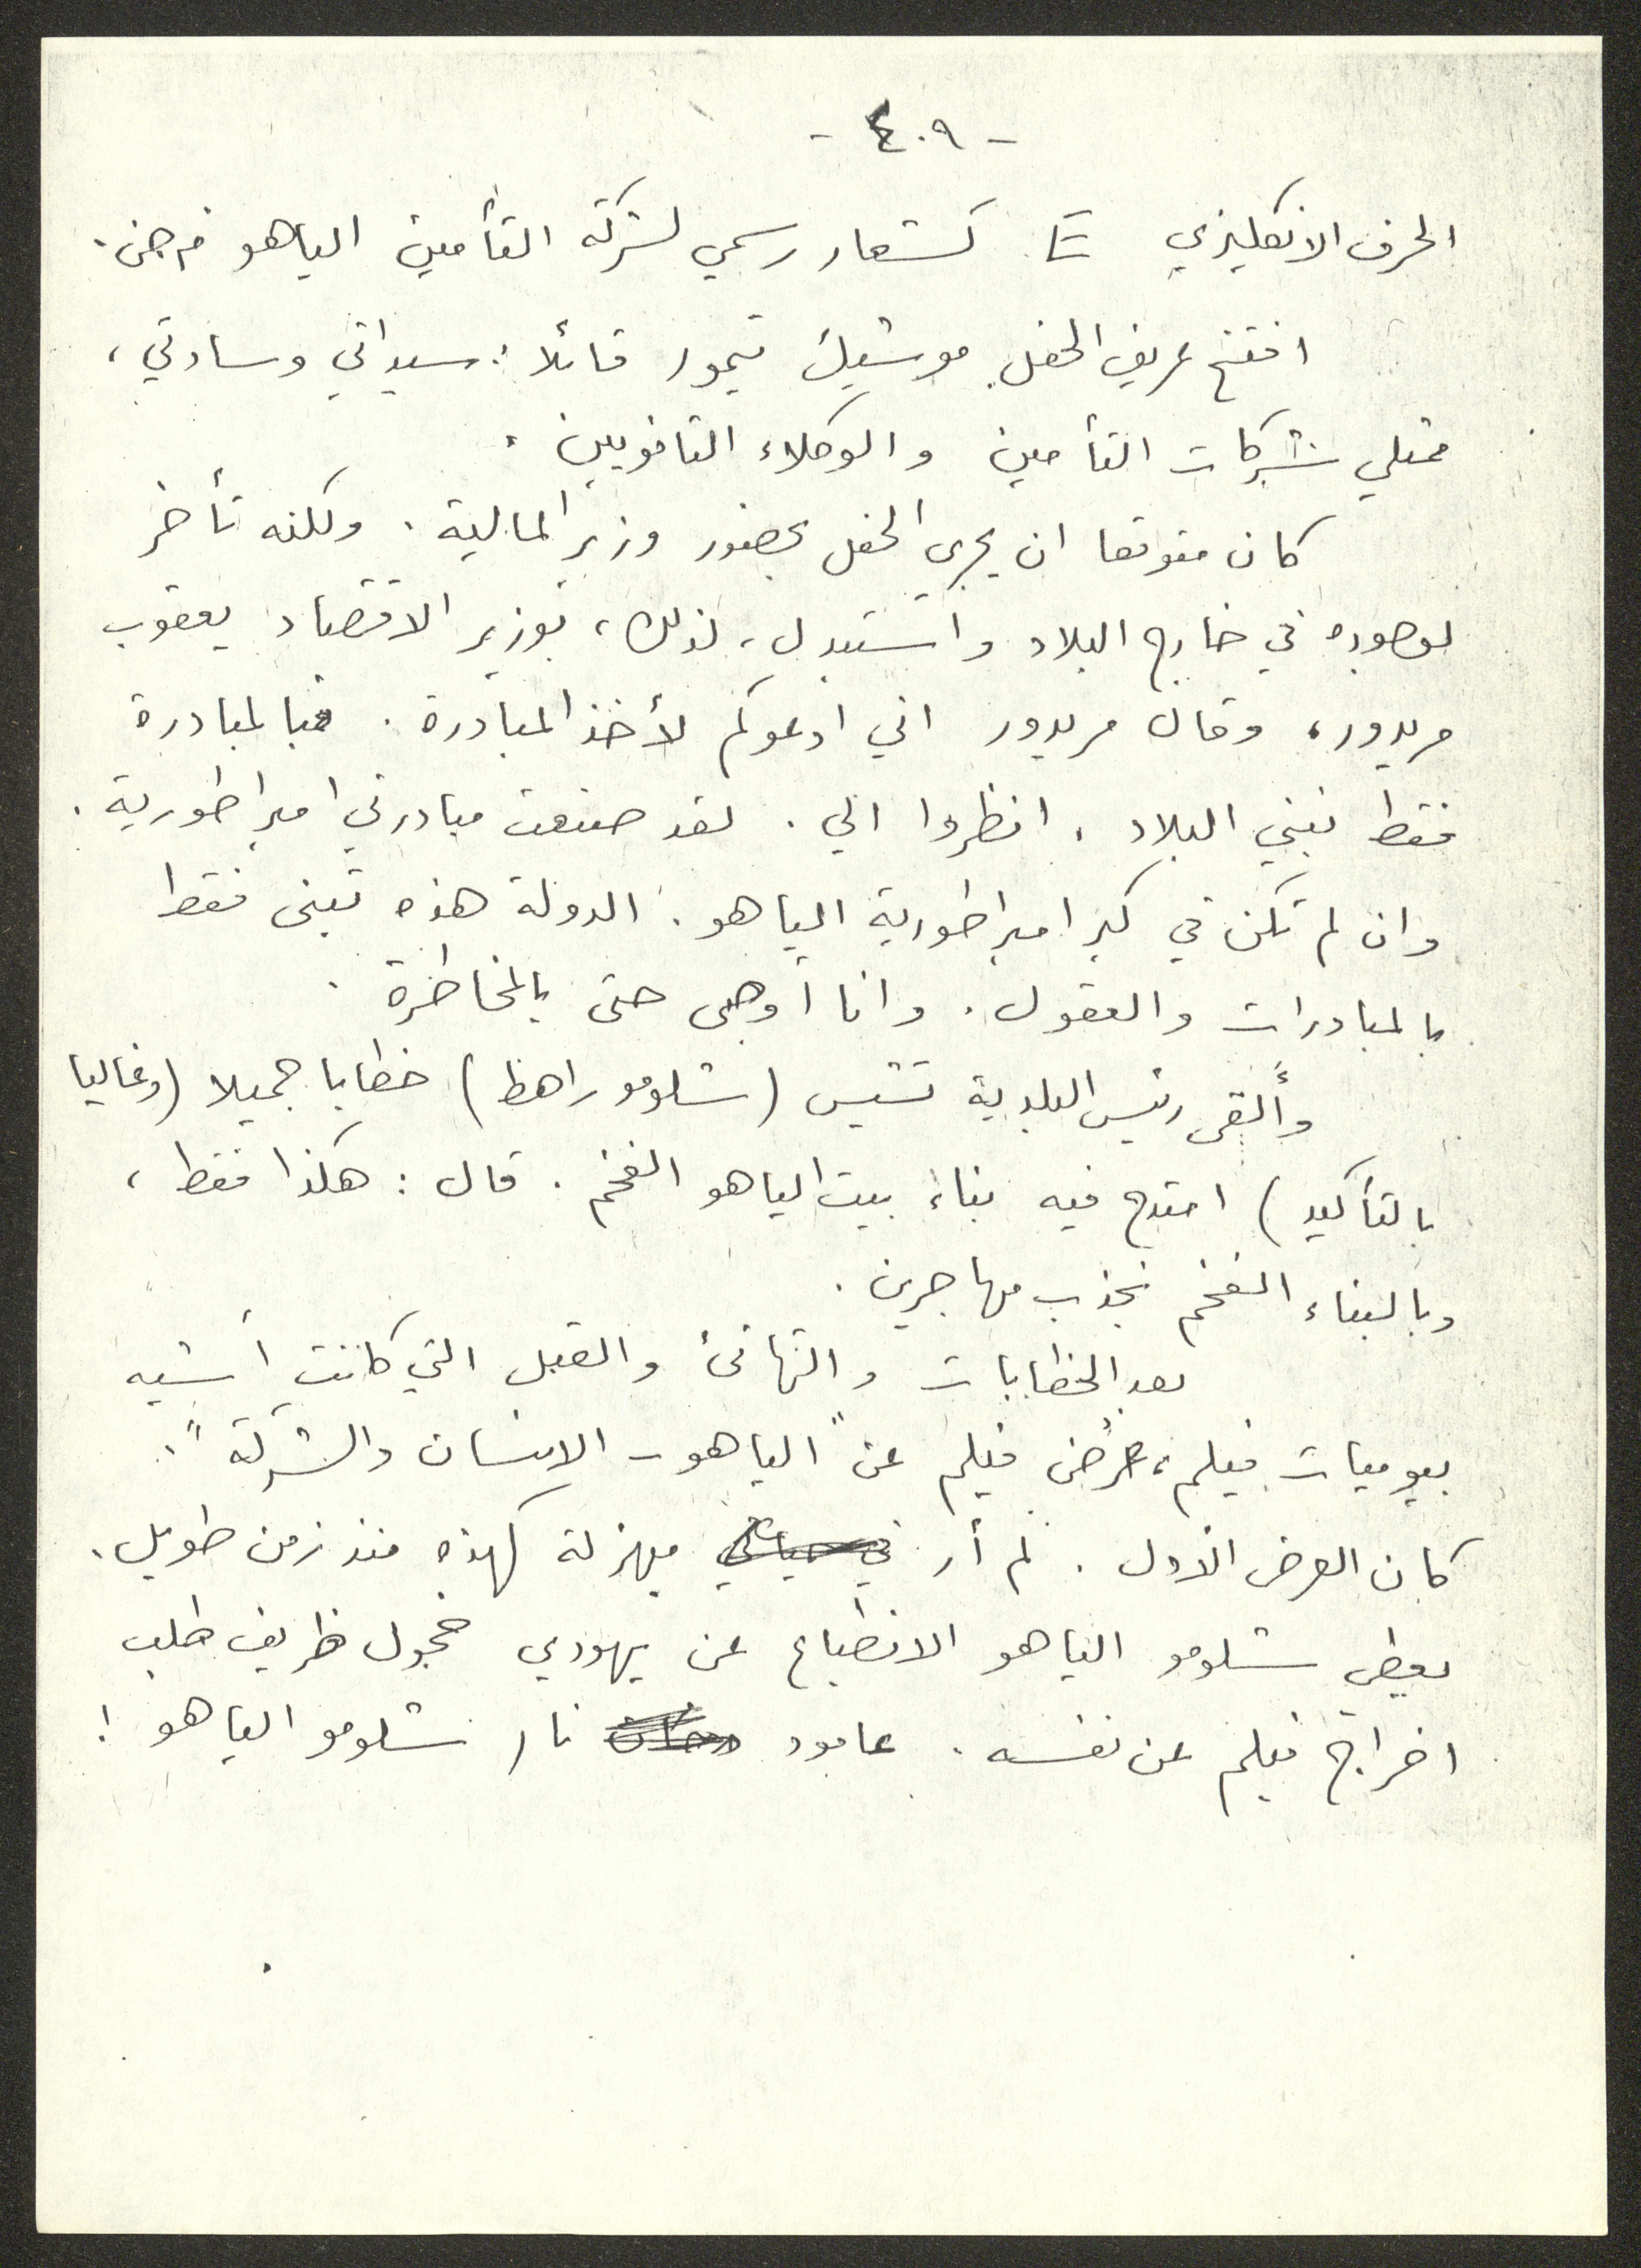 - ٤٠٩ -
الحرف الانكليزي كشعار رسمي لشركة التأمين الياهو م.ض.
افتتح عريف الحفل موشيك تيمور قائلا: سيداتي وسادتي،
ممثلي شركات التأمين والوكلاء الثانويين.
كان متوقعا ان يجري الحفل بحضور وزير المالية. ولكنه تأخر
لوجوده في خارج البلاد واستبدل، لذلك، بوزير الاقتصاد يعقوب
مريدور، وقال مريدور اني ادعوكم لأخذ المبادرة. فبالمبادرة
فقط نبني البلاد. انظروا الي. لقد صنعت مبادرتي امبراطورية.
وان لم تكن في كبر امبراطورية الياهو. الدولة هذه تبنى فقط
بالمبادرات والعقول. وانا أوصي حتى بالمخاطرة.
وألقى رئيس البلدية تشتش (شلومو راهط) خطابا جميلا (وغاليا
بالتأكيد) امتدح فيه بناء بيت الياهو الفخم. قال: هكذا فقط،
وبالبناء الفخم نجذب مهاجرين.
بعد الخطابات والتهانئ والقبل التي كانت أشبه
بيوميات فيلم، عُرض فيلم عن "الياهو - الانسان والشركة".
كان العرض الأول. لم أر في حياتي مهزلة كهذه منذ زمن طويل.
يعطي شلومو الياهو الانطباع عن يهودي خجول ظريف طلب
اخراج فيلم عن نفسه. عامود نار شلومو الياهو!